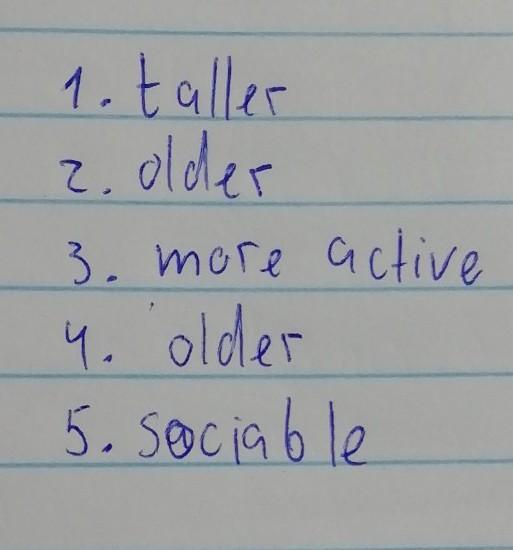 1. taller
2. older
3. more active
4. older
5. sociable